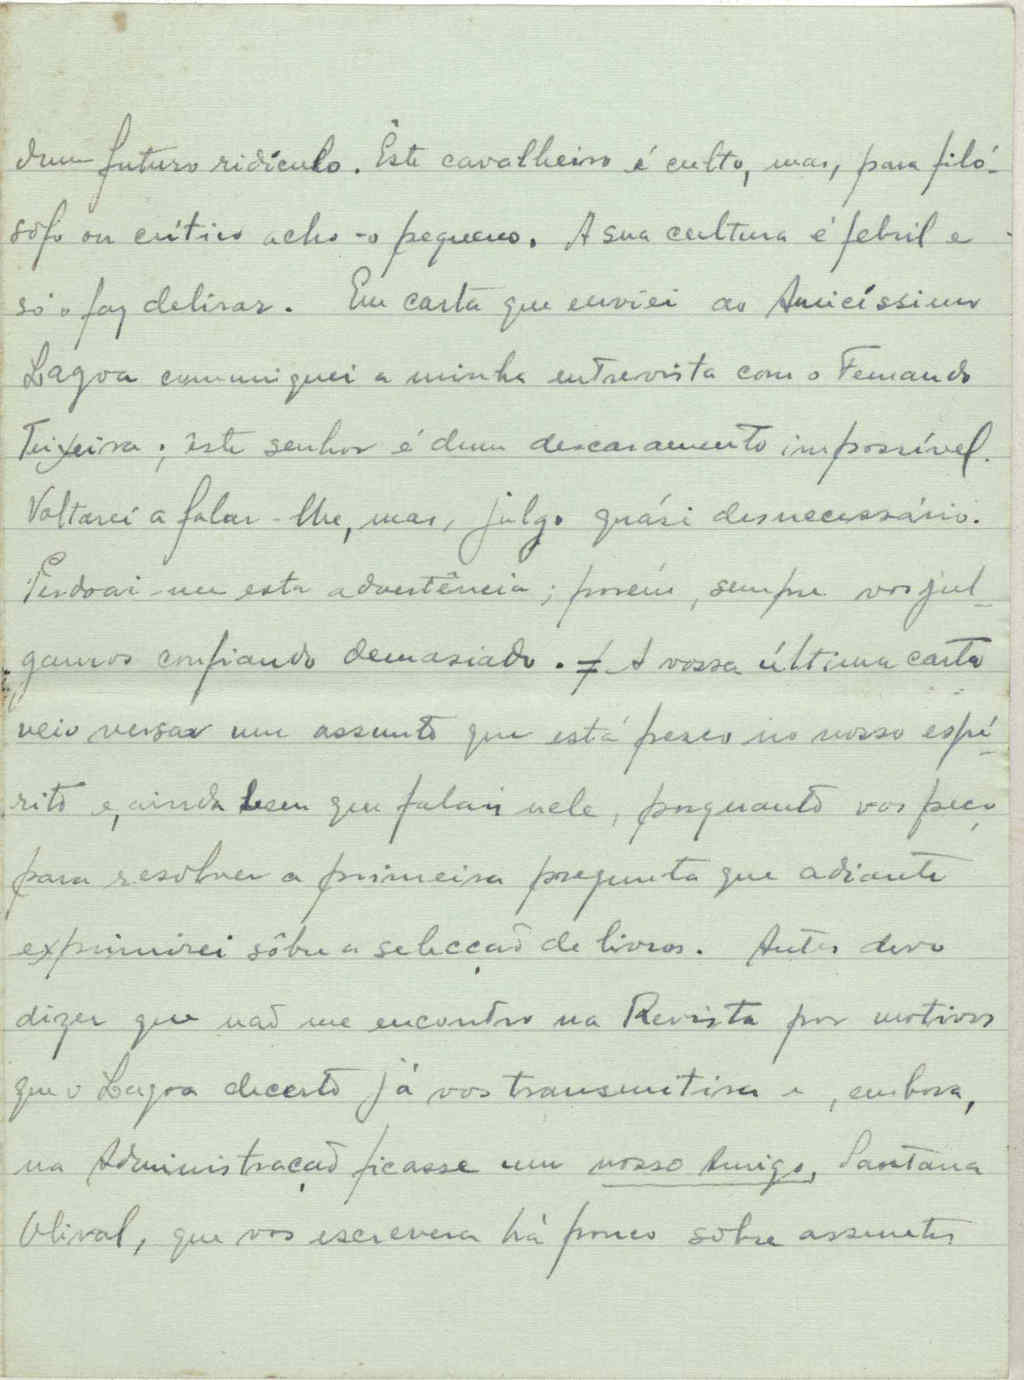 dum futuro ridículo. Êste cavalheiro é culto, mas, para filó-
sofo ou crítico acho-o pequeno. A sua cultura é febril e
só o faz delirar. Em carta que enviei ao Amicíssimo
Lagoa comuniquei a minha entrevista com o Fernando
Teixeira; êste senhor é dum descaramento impossível.
Voltarei a falar-lhe, mas, julgo quási desnecessário.
Perdoai-me esta advertência; porém, sempre vos jul-
gamos confiando demasiado. ≠ A vossa última carta
veio versar um assunto que está fresco no nosso espí-
rito e, ainda bem que falais nele, porquanto vos peço
para resolver a primeira pregunta que adiante
exprimirei sôbre a selecção de livros. Antes devo
dizer que não me encontro na Revista por motivos
que o Lagoa decerto já vos transmitira e, embora,
na Administração ficasse um nosso Amigo, Santana
Olival, que vos escrevera há pouco sôbre assuntos